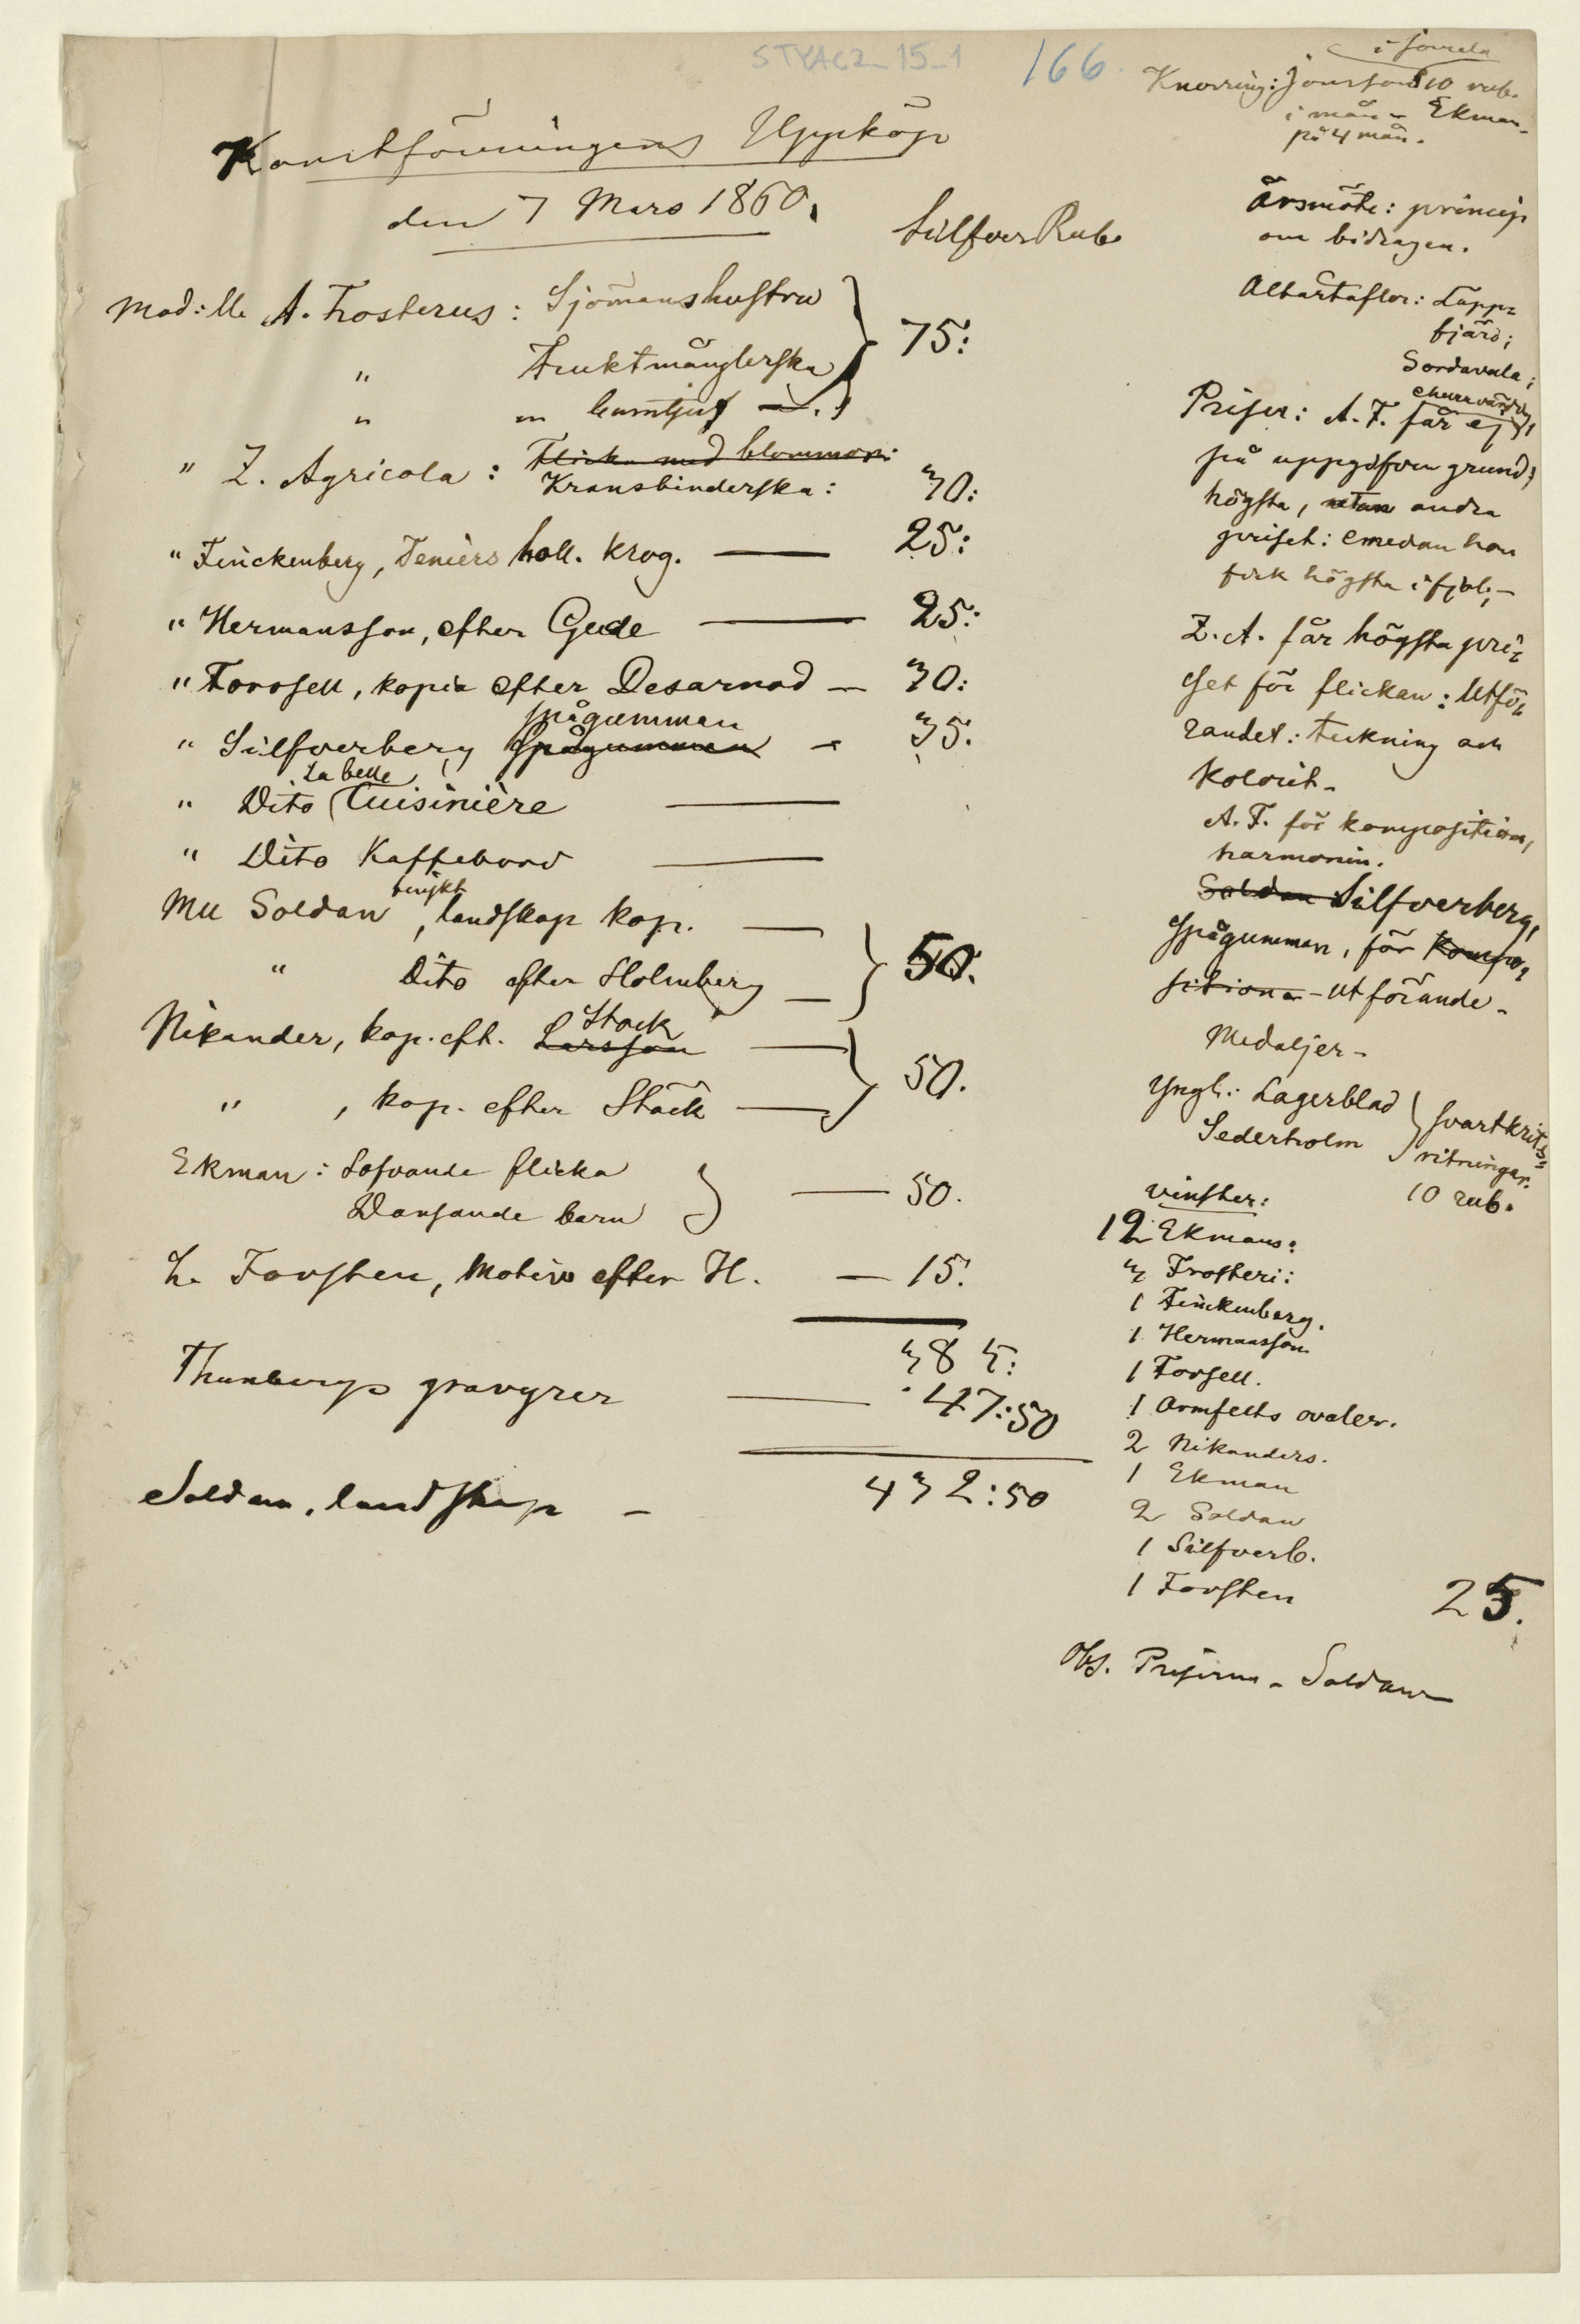 STYAC2_15_1
166.
Konstföreningens Uppköp
den 7 Mars 1860.
Silfver Rub.
Mad:lle A. Frosterus: Sjömanshustru
" Fruktmånglerska
75:
" en barntjuf
" Z. Agricola: Flicka med blommor:
Kransbinderska: 30:
" Finckenberg, Teniers holl. krog. — 25:
" Hermansson, efter Gude — 25:
" Forssell, kopia efter Desarnod — 30:
spågumman
" Silfverberg Spågumman - 35.
La belle
" Dito Cuisinière —
" Dito Kaffebord —
Mll Soldan, landskap kop. —
" Dito efter Holmberg —
50.
Stack
Nikander, kop. eft. Larsson —
50.
" , kop. efter Stack —
Ekman: Sofvande flicka
— 50.
Dansande barn
L. Forstén, Motiv efter H. — 15.
385:
Thunbergs gravyrer — 47:50
432:50
Soldan, landskap —
i
Knorring: 10 rub.
i mån - Ekman -
på 4 mån.
Årsmöte: princip
om bidragen.
Altartaflor: Lapp=
fjärd;
Sordavala;
Priser: A. F. får ej,
på uppgifven grund;
högsta, utan andra
priset: emedan hon
fick högsta i fjol; -
Z. A. får högsta pri=
set för flickan: Utfö=
randet: teckning och
kolorit -
A. F. för komposition,
harmonin.
Soldan Silfverberg,
Spågumman, för kompo=
sitionen - utförande -
Medaljer -
Yngl.: Lagerblad
Sederholm
svartkrits=
ritningar.
10 rub.
vinster:
12 Ekmans:
3 Frosteri:
1 Finckenberg.
1 Hermansson
1 Forsell.
1 Armfelts ovaler.
2 Nikanders.
1 Ekman
2 Soldan
1 Silfverb.
1 Forstén
25.
Obs. Priserna - Soldan